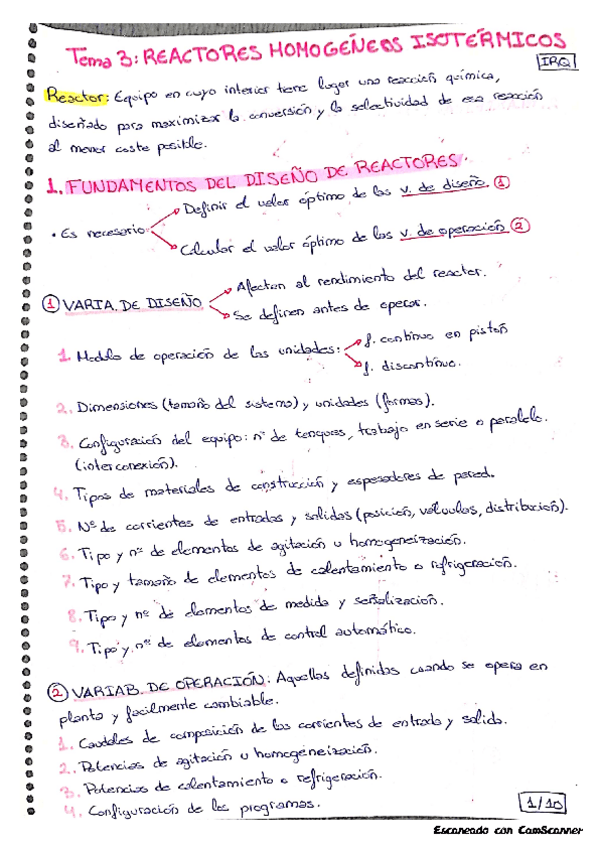 Tema 3: REACTORES HOMOGÉNEOS ISOTÉRMICOS
IRQ
Reactor: Equipo en cuyo interior tiene lugar una reacción química,
diseñado para maximizar la conversión y la selectividad de esa reacción
al menor coste posible.
1. FUNDAMENTOS DEL DISEÑO DE REACTORES.
Definir el valor óptimo de las v. de diseño. 1
• Es necesario
Calcular el valor óptimo de las v. de operación 2
Afectan al rendimiento del reactor.
1 VARIA. DE DISEÑO
Se definen antes de operar.
f. continuo en pistón
1. Modelo de operación de las unidades:
f. discontinuo.
2. Dimensiones (tamaño del sistema) y unidades (formas).
3. Configuración del equipo: nº de tanques, trabajo en serie o paralelo.
(interconexión).
4. Tipos de materiales de construcción y espesadores de pared.
5. Nº de corrientes de entradas y salidas (posición, válvulas, distribución).
6. Tipo y nº de elementos de agitación u homogeneización.
7. Tipo y tamaño de elementos de calentamiento o refrigeración.
8. Tipo y nº de elementos de medida y señalización.
9. Tipo y nº de elementos de control automático.
2 VARIAB. DE OPERACIÓN: Aquellas definidas cuando se opera en
planta y facilmente cambiable.
1. Caudales de composición de las corrientes de entrada y salida.
2. Potencias de agitación u homogeneización.
3. Potencias de calentamiento o refrigeración.
4. Configuración de los programas.
1/10
Escaneado con CamScanner